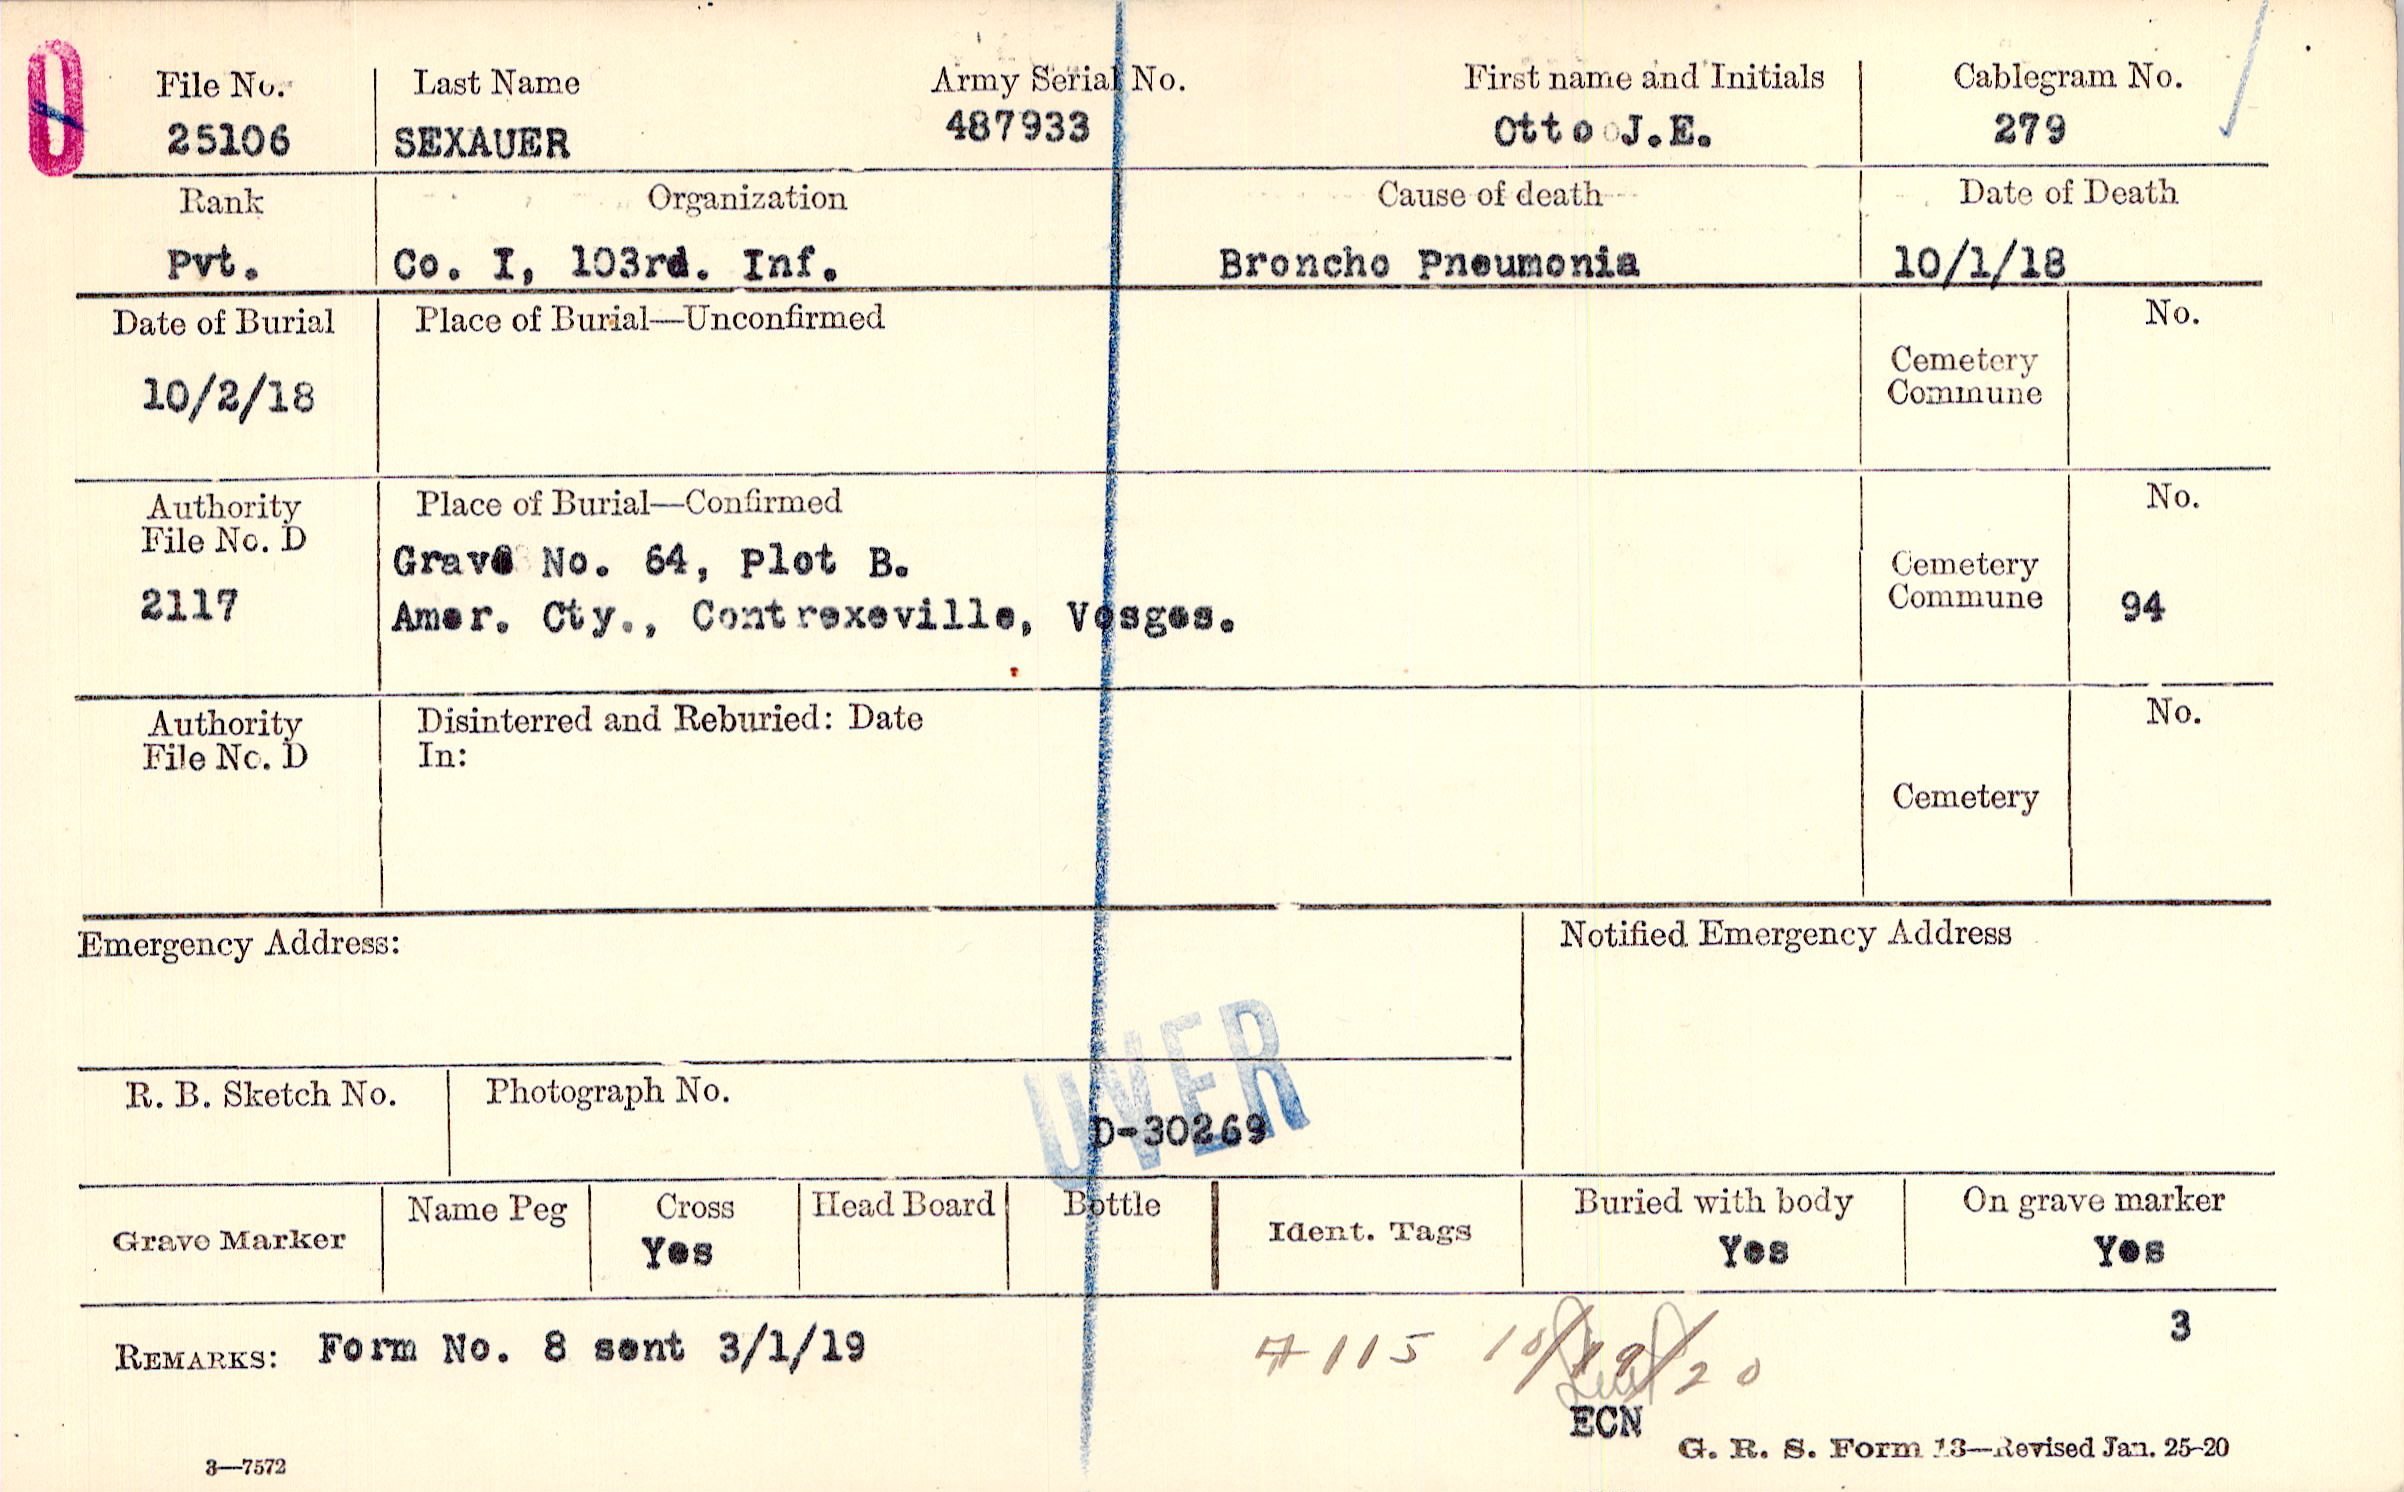 File No. Last Name Army Serial No. First name and Initials Cablegram No.
25106 SEXAUER 487933 Otto J.E. 279
Rank Organization Cause of death Date of Death
Pvt. Co. I, 103rd. Inf. Broncho Pneumonia 10/1/18
Date of Burial Place of Burial—Unconfirmed No.
10/2/18 Cemetery
Commune
Authority Place of Burial—Confirmed No.
File No. D Grave No. 64, Plot B. Cemetery
2117 Amer. Cty., Contrexeville, Vosges. Commune 94
Authority Disinterred and Reburied: Date No.
File No. D In:
Cemetery
Emergency Address: Notified Emergency Address
OVER
R. B. Sketch No. Photograph No.
D-30269
Grave Marker Name Peg Cross Head Board Bottle Ident. Tags Buried with body On grave marker
Yes Yes Yes
3
REMARKS: Form No. 8 sent 3/1/19 #115 10/19/20
ECN
3—7572 G. R. S. Form 13—Revised Jan. 25-20